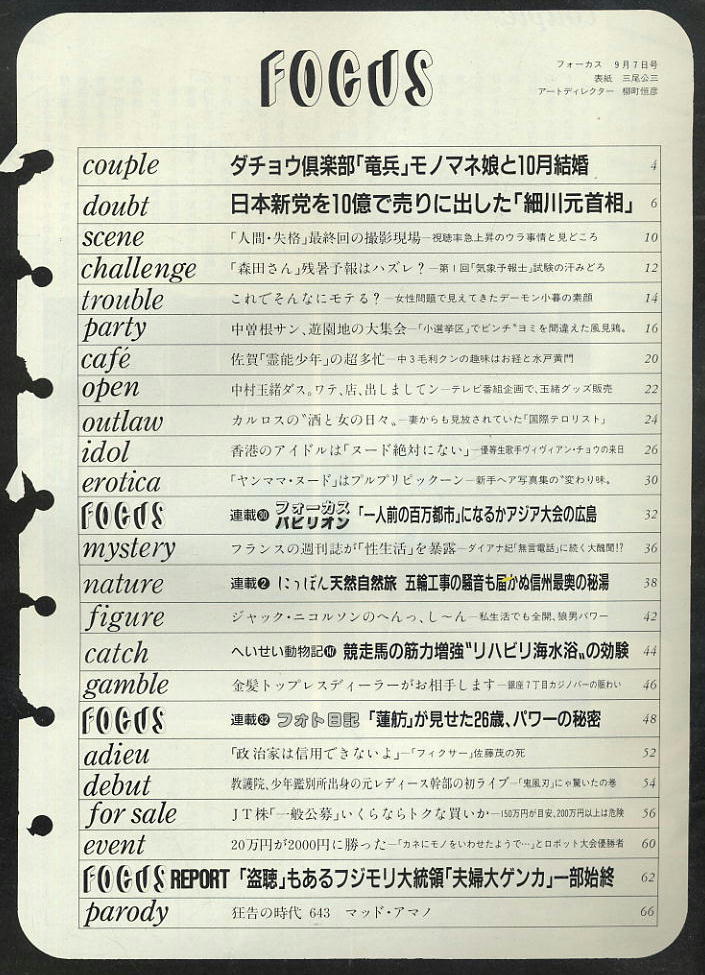 FOCUS
フォーカス 9月7日号
表紙 三尾公三
アートディレクター 柳町恒彦
couple ダチョウ倶楽部「竜兵」モノマネ娘と10月結婚 4
doubt 日本新党を10億で売りに出した「細川元首相」 6
scene 「人間・失格」最終回の撮影現場─視聴率急上昇のウラ事情と見どころ 10
challenge 「森田さん」残暑予報はハズレ?─第1回「気象予報士」試験の汗みどろ 12
trouble これでそんなにモテる?─女性問題で見えてきたデーモン小暮の素顔 14
party 中曽根サン、遊園地の大集会─「小選挙区」でピンチ〝ヨミを間違えた風見鶏〟 16
café 佐賀「霊能少年」の超多忙─中3毛利クンの趣味はお経と水戸黄門 20
open 中村玉緒ダス。ワテ、店、出しましてン─テレビ番組企画で、玉緒グッズ販売 22
outlaw カルロスの〝酒と女の日々〟─妻からも見放されていた「国際テロリスト」 24
idol 香港のアイドルは「ヌード絶対にない」─優等生歌手ヴィヴィアン・チョウの来日 26
erotica 「ヤンママ・ヌード」はプルプリピックーン─新手ヘア写真集の〝変わり味〟 30
FOCUS 連載 フォーカスパビリオン 「一人前の百万都市」になるかアジア大会の広島 32
mystery フランスの週刊誌が「性生活」を暴露─ダイアナ妃「無言電話」に続く大醜聞!? 36
nature 連載❷ にっぽん天然自然旅 五輪工事の騒音も届かぬ信州最奥の秘湯 38
figure ジャック・ニコルソンのへんっ、し〜ん─私生活でも全開、狼男パワー 42
catch へいせい動物記 競走馬の筋力増強〝リハビリ海水浴〟の効験 44
gamble 金髪トップレスディーラーがお相手します─銀座7丁目カジノバーの賑わい 46
FOCUS 連載㉜ フォト日記 「蓮舫」が見せた26歳、パワーの秘密 48
adieu 「政治家は信用できないよ」─「フィクサー」佐藤茂の死 52
debut 教護院、少年鑑別所出身の元レディース幹部の初ライブ─「鬼風刃」にゃ驚いたの巻 54
for sale JT株「一般公募」いくらならトクな買いか─150万円が目安、200万円以上は危険 56
event 20万円が2000円に勝った─「カネにモノをいわせたようで…」とロボット大会優勝者 60
FOCUS REPORT 「盗聴」もあるフジモリ大統領「夫婦大ゲンカ」一部始終 62
parody 狂告の時代 643 マッド・アマノ 66